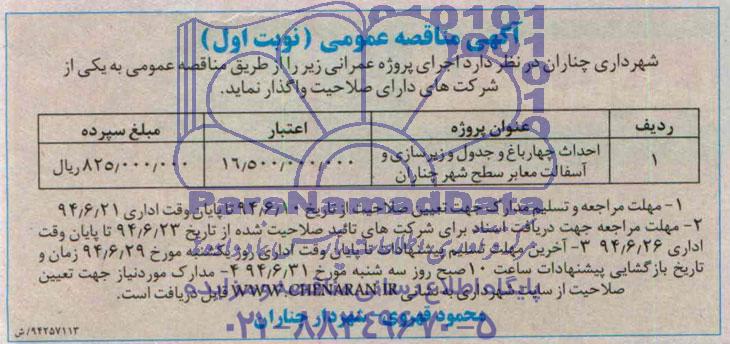 آگهی مناقصه عمومی (نوبت اول)
شهرداری چناران در نظر دارد اجرای پروژه عمرانی زیر را از طریق مناقصه عمومی به یکی از
شرکت های دارای صلاحیت واگذار نماید.
ردیف عنوان پروژه اعتبار مبلغ سپرده
۱ احداث چهارباغ و جدول و زیرسازی و آسفالت معابر سطح شهر چناران ۱۶/۵۰۰/۰۰۰/۰۰۰ ۸۲۵/۰۰۰/۰۰۰ ریال
۱- مهلت مراجعه و تسلیم مدارک جهت تعیین صلاحیت از تاریخ ۹۴/۶/۱۰ تا پایان وقت اداری ۹۴/۶/۲۱
۲- مهلت مراجعه جهت دریافت اسناد برای شرکت های تائید صلاحیت شده از تاریخ ۹۴/۶/۲۳ تا پایان وقت
اداری ۹۴/۶/۲۶ ۳- آخرین مهلت تسلیم پیشنهادات تا پایان وقت اداری روز یکشنبه مورخ ۹۴/۶/۲۹ زمان و
تاریخ بازگشایی پیشنهادات ساعت ۱۰ صبح روز سه شنبه مورخ ۹۴/۶/۳۱ ۴- مدارک موردنیاز جهت تعیین
صلاحیت از سایت شهرداری به نشانی WWW.CHENARAN.IR قابل دریافت است.
محمود قهروی - شهردار چناران
۹۴۲۵۷۱۱۳/ش
ParsNamadData
۰۲۱-۸۸۳۴۹۶۷۰-۵